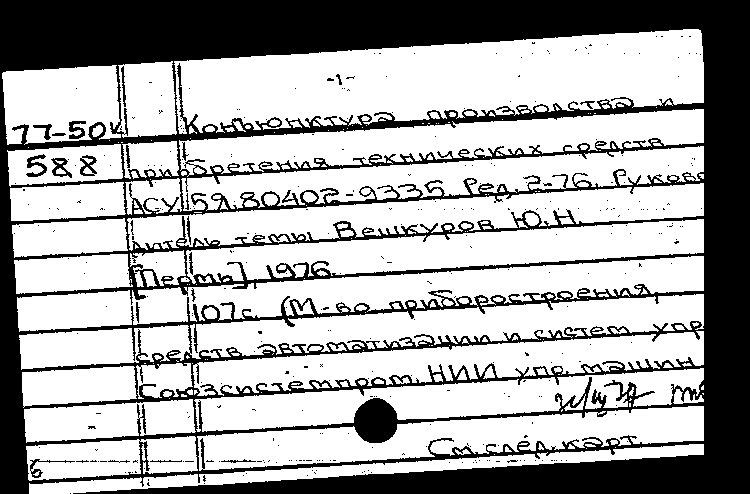 -1-
77-50к Конъюнктура производства и
588 приобретения технических средств
АСУ 59.80402-9335. Ред. 2-76. Руково
дитель темы Вешкуров Ю.Н.
[Пермь], 1976.
107с. (М-во приборостроения,
средств автоматизации и систем упр
Союзсистемпром. НИИ упр. машин
См. след. карт.
6